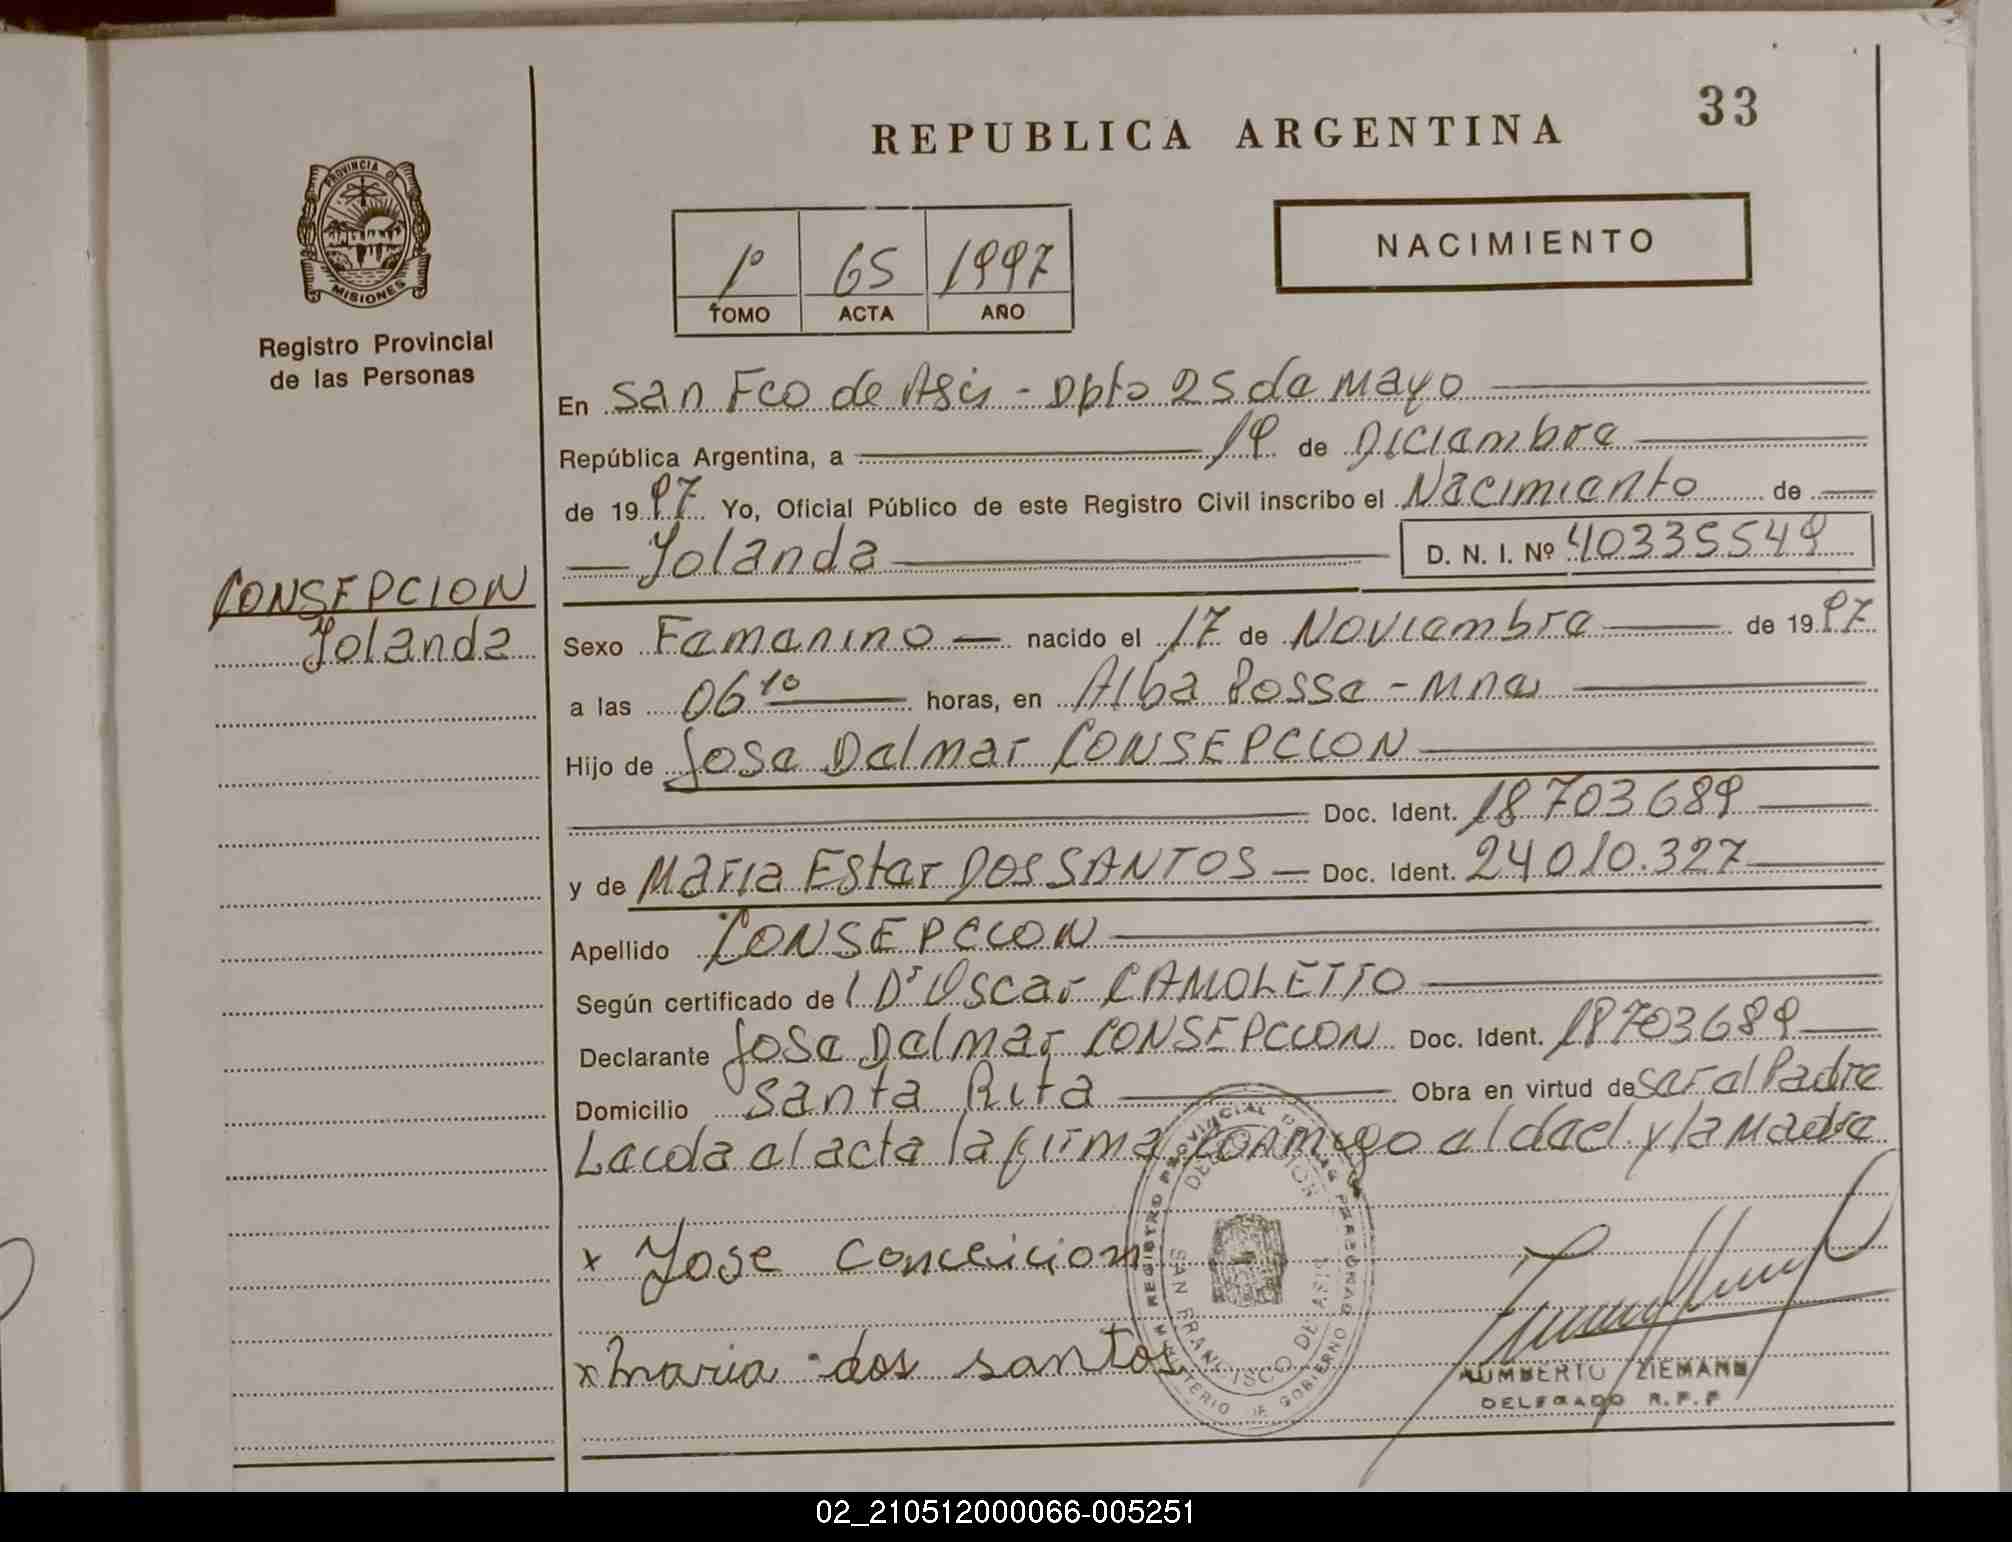 REPUBLICA ARGENTINA
33
PROVINCIA DE
MISIONES
Registro Provincial
de las Personas
1º 65 1997
TOMO ACTA AÑO
NACIMIENTO
En San Fco de Asis - Dpto 25 de Mayo
República Argentina, a 19 de Diciembre
de 1997 Yo, Oficial Público de este Registro Civil inscribo el Nacimiento de
Yolanda D. N. I. Nº 40335549
CONSEPCION
Yolanda
Sexo Femenino nacido el 17 de Noviembre de 1997
a las 06 10 horas, en Alba Posse - Mnes
Hijo de Jose Delmar CONSEPCION
Doc. Ident. 18703689
y de Maria Ester DOS SANTOS Doc. Ident. 24010.327
Apellido CONSEPCION
Según certificado de Dr Oscar CAMOLETTO
Declarante Jose Delmar CONSEPCION Doc. Ident. 18703689
Domicilio Santa Rita Obra en virtud de ser el Padre
Leida el acta la firma conmigo el del y la Madre
x Jose Conceicion
x Maria dos santos
REGISTRO PROVINCIAL DE LAS PERSONAS
MINISTERIO DE GOBIERNO
SAN FRANCISCO DE ASIS
HUMBERTO ZIEMANN
DELEGADO R.P.P
02_210512000066-005251